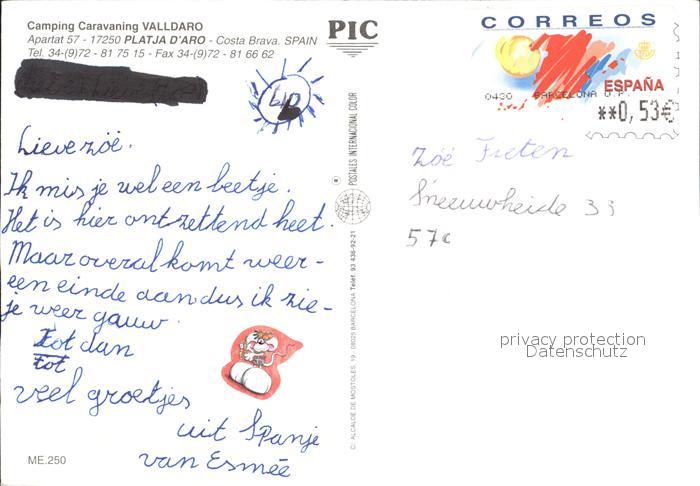 Camping Caravaning VALLDARO
Apartat 57 - 17250 PLATJA D'ARO - Costa Brava. SPAIN
Tel. 34-(9)72 - 81 75 15 - Fax 34-(9)72 - 81 66 62
PIC
CORREOS
ESPAÑA
0430 BARCELONA O.P.
**0,53€
Lieve zöe.
Ik mis je wel een beetje.
Het is hier ontzettend heet.
Maar overal komt weer -
een einde aan dus ik zie -
je weer gauw.
Tot dan
tot
veel groetjes
uit Spanje
van Esmée
ME.250
POSTALES INTERNACIONAL COLOR
C: ALCALDE DE MOSTOLES, 19 - 08025 BARCELONA Teléf. 93 436-92-21
Zöé Fieten
Sneeuwheide 33
57c
privacy protection
Datenschutz